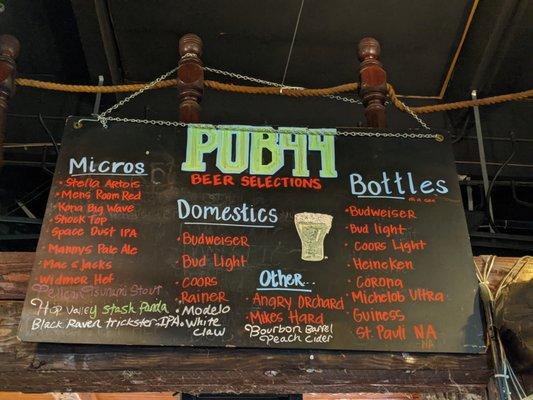 PUB44
BEER SELECTIONS
Micros
Stella Artois
Mens Room Red
Kona Big Wave
Shock Top
Space Dust IPA
Mannys Pale Ale
Mac & Jacks
Widmer Hef
Pelican Tsunami Stout
Hop Valley stash panda
Black Raven trickster IPA
Domestics
Budweiser
Bud Light
Coors
Rainer
Modelo
White
Claw
Other...
Angry Orchard
Mikes Hard
Bourbon Barrel
Peach Cider
Bottles
Budweiser
Bud light
Coors Light
Heineken
Corona
Michelob Ultra
Guiness
St. Pauli NA